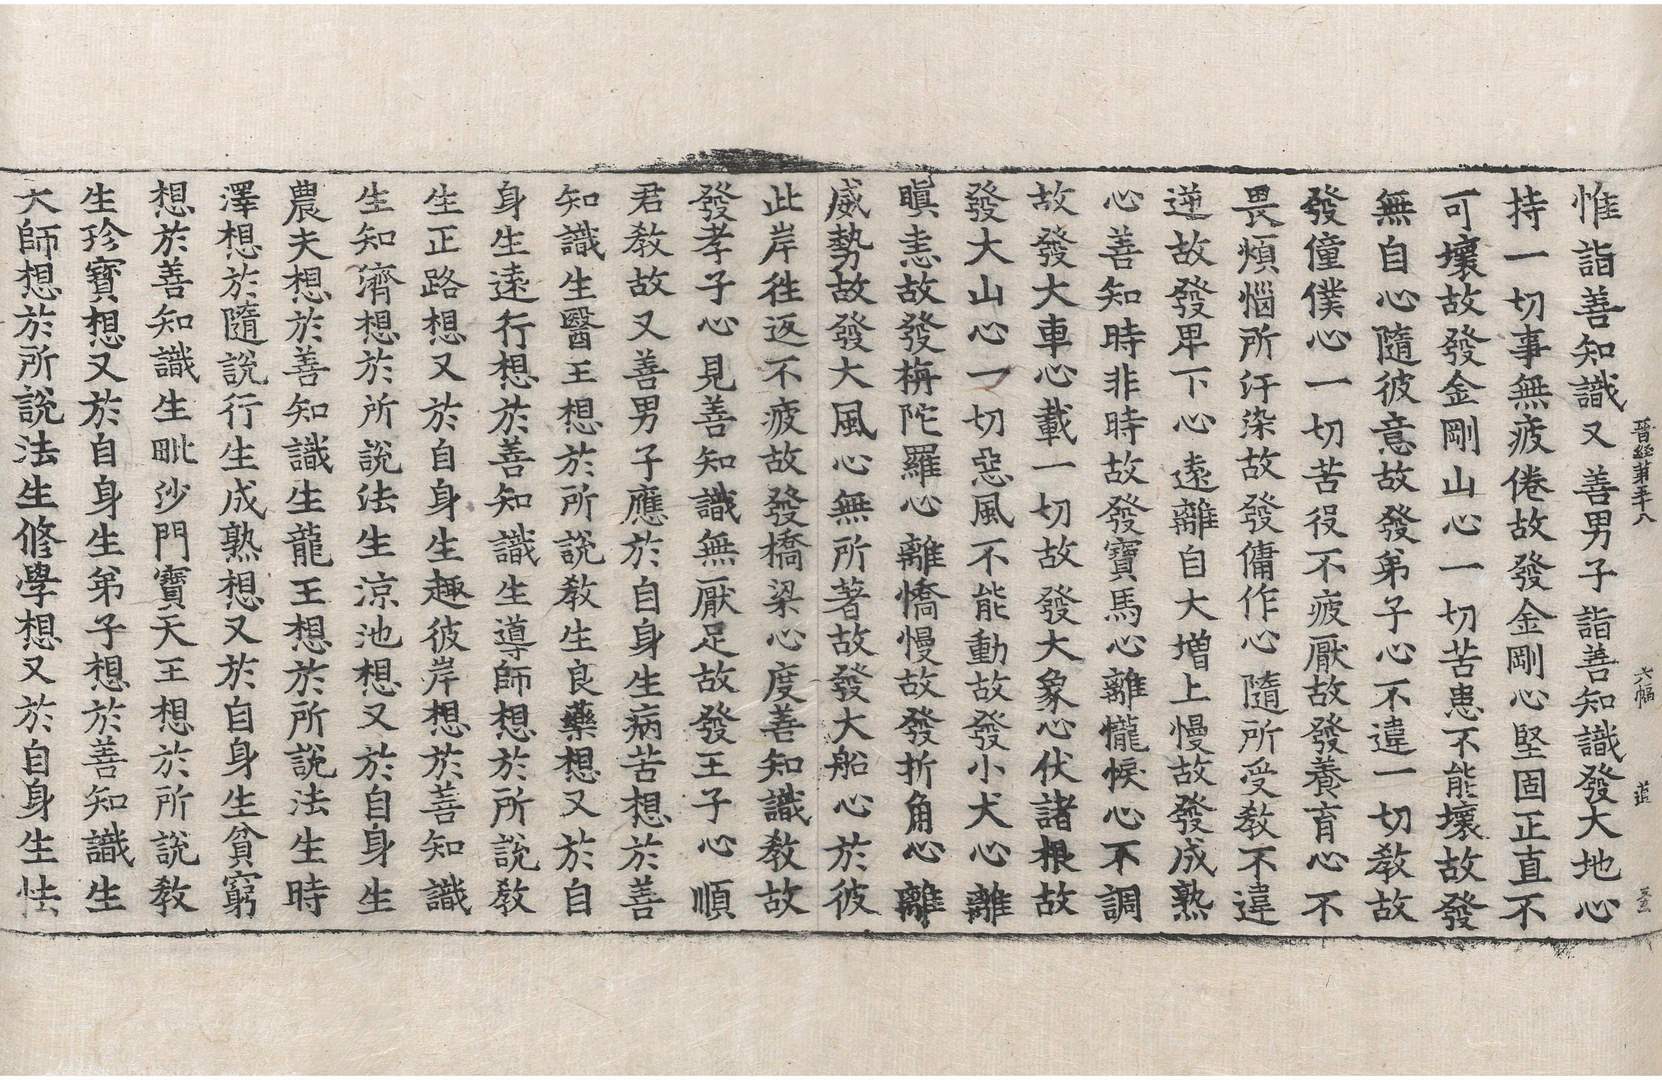 晉經第五十八 六幅 蓝
惟詣善知識又善男子詣善知識發大地心
持一切事無疲倦故發金剛心堅固正直不
可壞故發金剛山心一切苦患不能壞故發
無自心隨彼意故發弟子心不違一切教故
發僮僕心一切苦役不疲厭故發養育心不
畏煩惱所汙染故發傭作心隨所受教不違
逆故發卑下心遠離自大增上慢故發成熟
心善知時非時故發寶馬心離憹悷心不調
故發大車心載一切故發大象心伏諸根故
發大山心一切惡風不能動故發小犬心離
瞋恚故發栴陀羅心離憍慢故發折角心離
威勢故發大風心無所著故發大船心於彼
此岸往返不疲故發橋梁心度善知識教故
發孝子心見善知識無厭足故發王子心順
君教故又善男子應於自身生病苦想於善
知識生醫王想於所說教生良藥想又於自
身生遠行想於善知識生導師想於所說教
生正路想又於自身生趣彼岸想於善知識
生知濟想於所說法生涼池想又於自身生
農夫想於善知識生龍王想於所說法生時
澤想於隨說行生成熟想又於自身生貧窮
想於善知識生毗沙門寶天王想於所說教
生珍寶想又於自身生弟子想於善知識生
大師想於所說法生修學想又於自身生怯